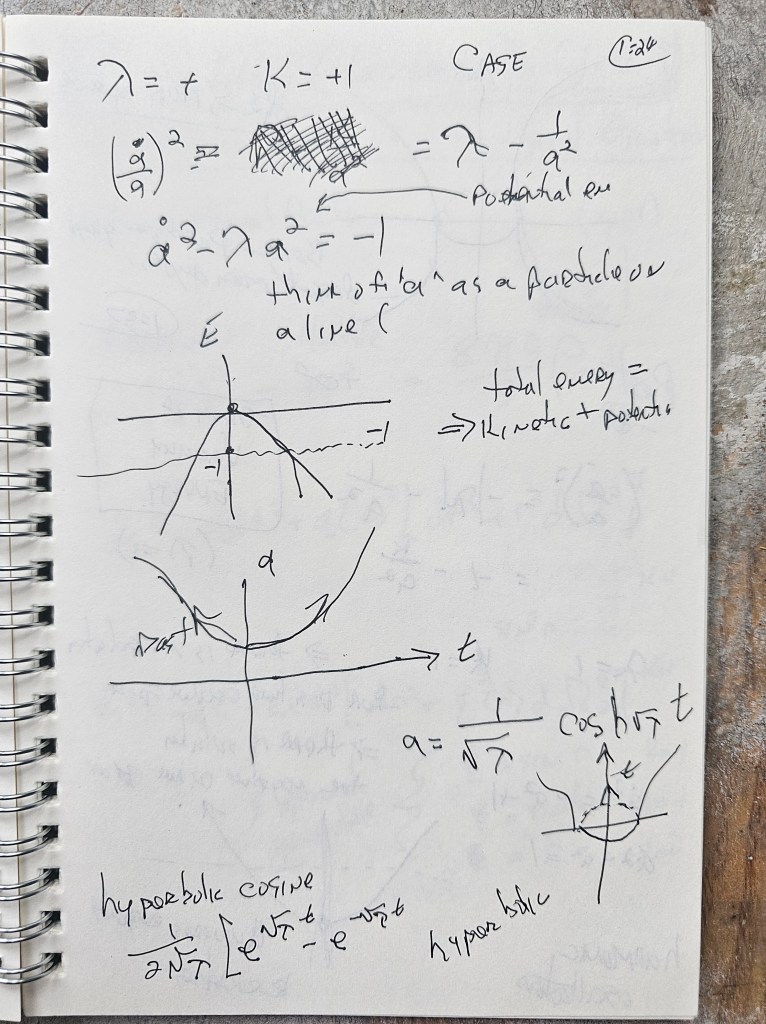 λ = + K = +1 CASE 1:24
(ȧ/a)² = = λ - 1/a²
Potential en
ȧ² - λa² = -1
think of "a" as a particle on
a line (
E
total energy =
⇒ Kinetic + potentia
-1
-1
a
Past
t
a = 1/√λ cosh√λ t
t
hyperbolic cosine
1/2√λ [e^√λt - e^-√λt
hyperbolic